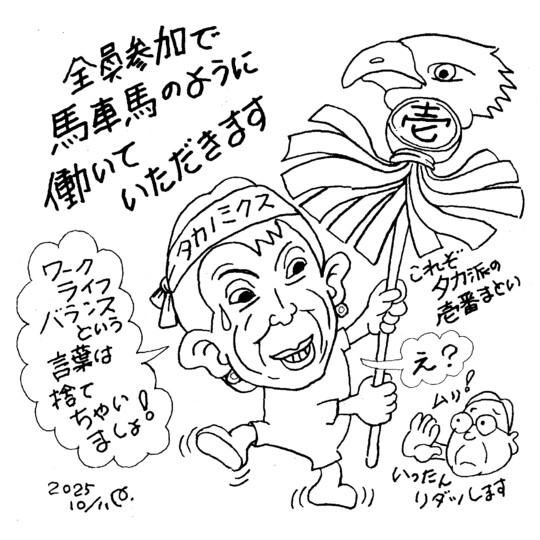 全員参加で
馬車馬のように
働いて
いただきます
壱
タカノミクス
これぞ
タカ派の
壱番まとい
ワーク
ライフ
バランス
という
言葉は
捨て
ちゃい
ましょ!
え?
ムリ!
いったん
リダッします
2025
10/11